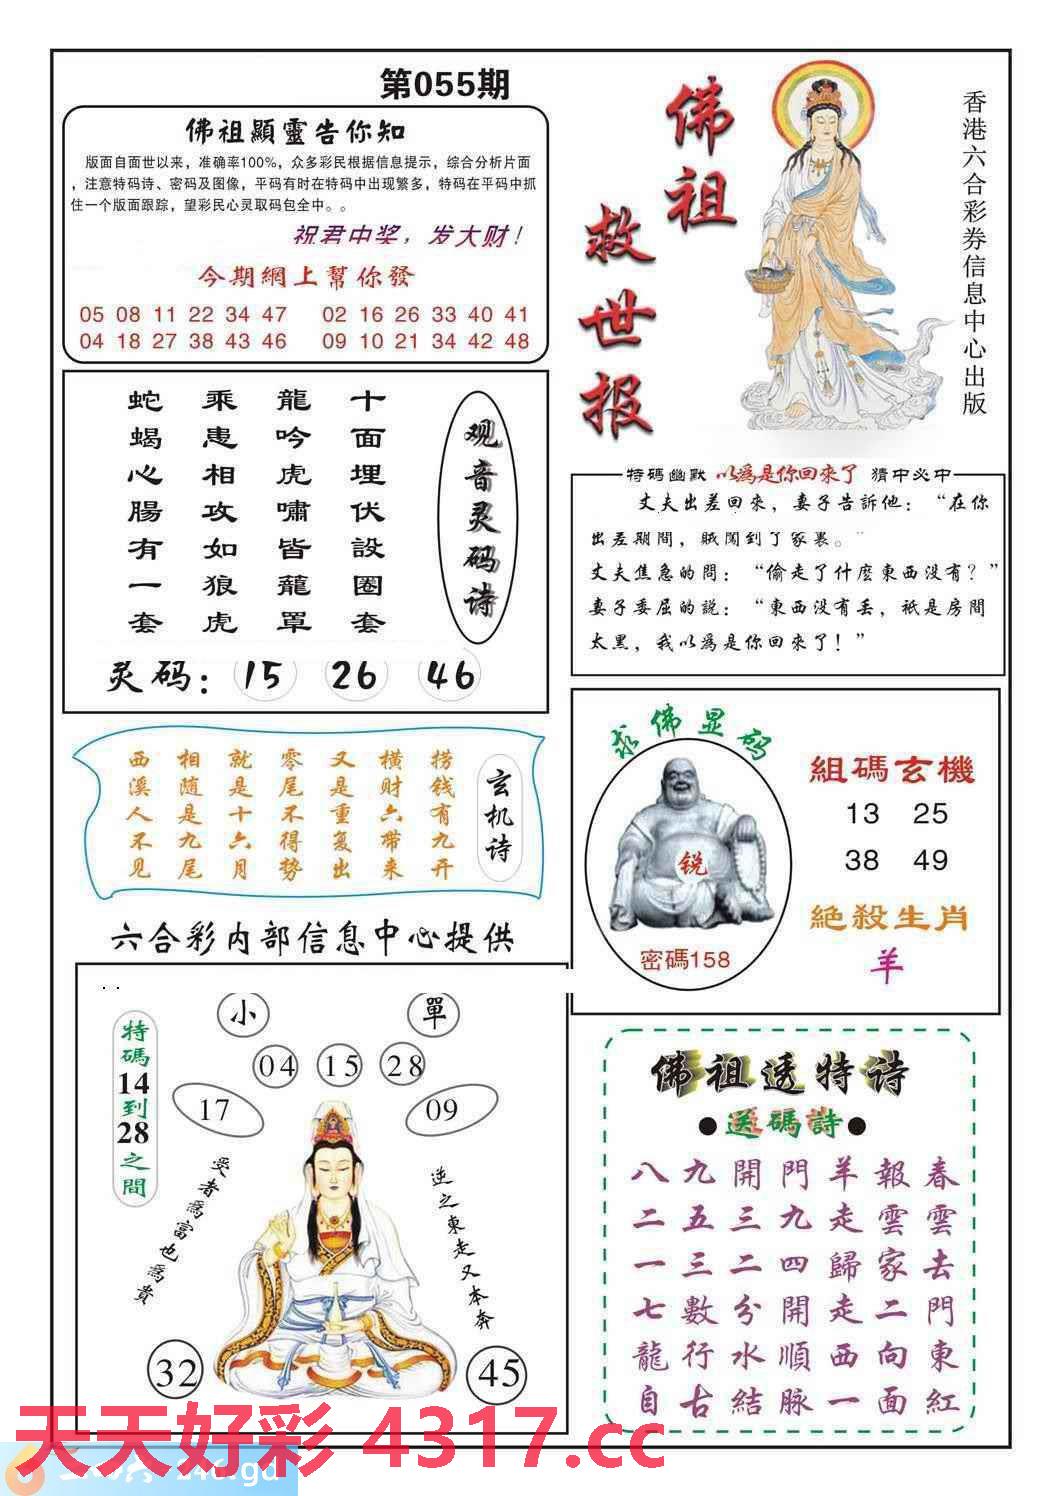 第055期
佛祖顯靈告你知
版面自面世以来，准确率100%，众多彩民根据信息提示，综合分析片面
，注意特码诗、密码及图像，平码有时在特码中出现繁多，特码在平码中抓
住一个版面跟踪，望彩民心灵取码包全中。。
祝君中奖，发大财！
今期網上幫你發
05 08 11 22 34 47 02 16 26 33 40 41
04 18 27 38 43 46 09 10 21 34 42 48
佛祖
救世报
香港六合彩券信息中心出版
观音灵码诗
十面埋伏設圈套
龍吟虎嘯皆蘢罩
乘患相攻如狼虎
蛇蝎心腸有一套
灵码：15 26 46
特碼幽默 以爲是你回來了 猜中必中
丈夫出差回來，妻子告訴他：“在你
出差期間，賊闖到了家裹。”
丈夫焦急的問：“偷走了什麽東西没有？”
妻子委屈的説：“東西没有丢，祇是房間
太黑，我以爲是你回來了！”
玄机诗
捞钱有九开
横财六带来
又是重复出
零尾不得势
就是十六月
相随是九尾
西溪人不见
求佛显码
锐
密碼158
組碼玄機
13 25
38 49
絶殺生肖
羊
六合彩内部信息中心提供
小
單
04 15 28
17
09
特碼14到28之間
受者爲富也爲貴
逆之東走又本奔
32
45
佛祖透特诗
●送碼詩●
八九開門羊報春
二五三九走雲雲
一三二四歸家去
七數分開走二門
龍行水順西向東
自古結脉一面紅
天天好彩 4317.cc
246.gd